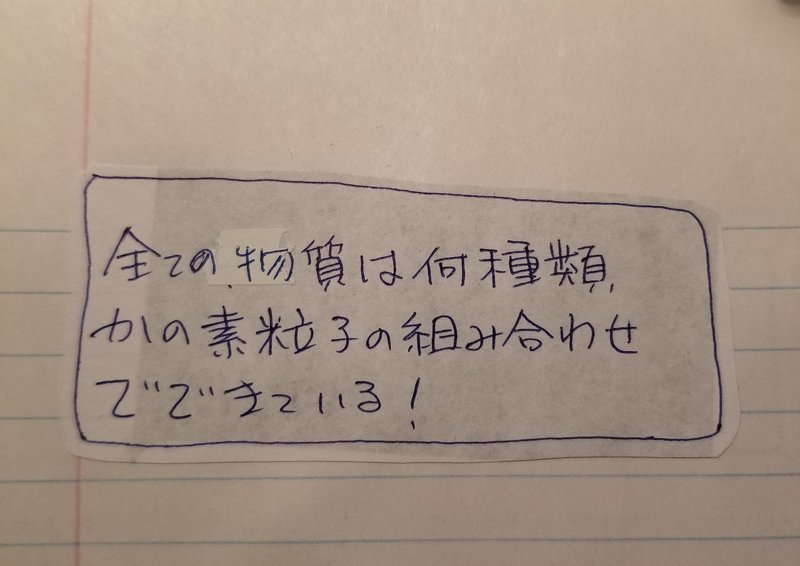 全ての物質は何種類
かの素粒子の組み合わせ
でできている!